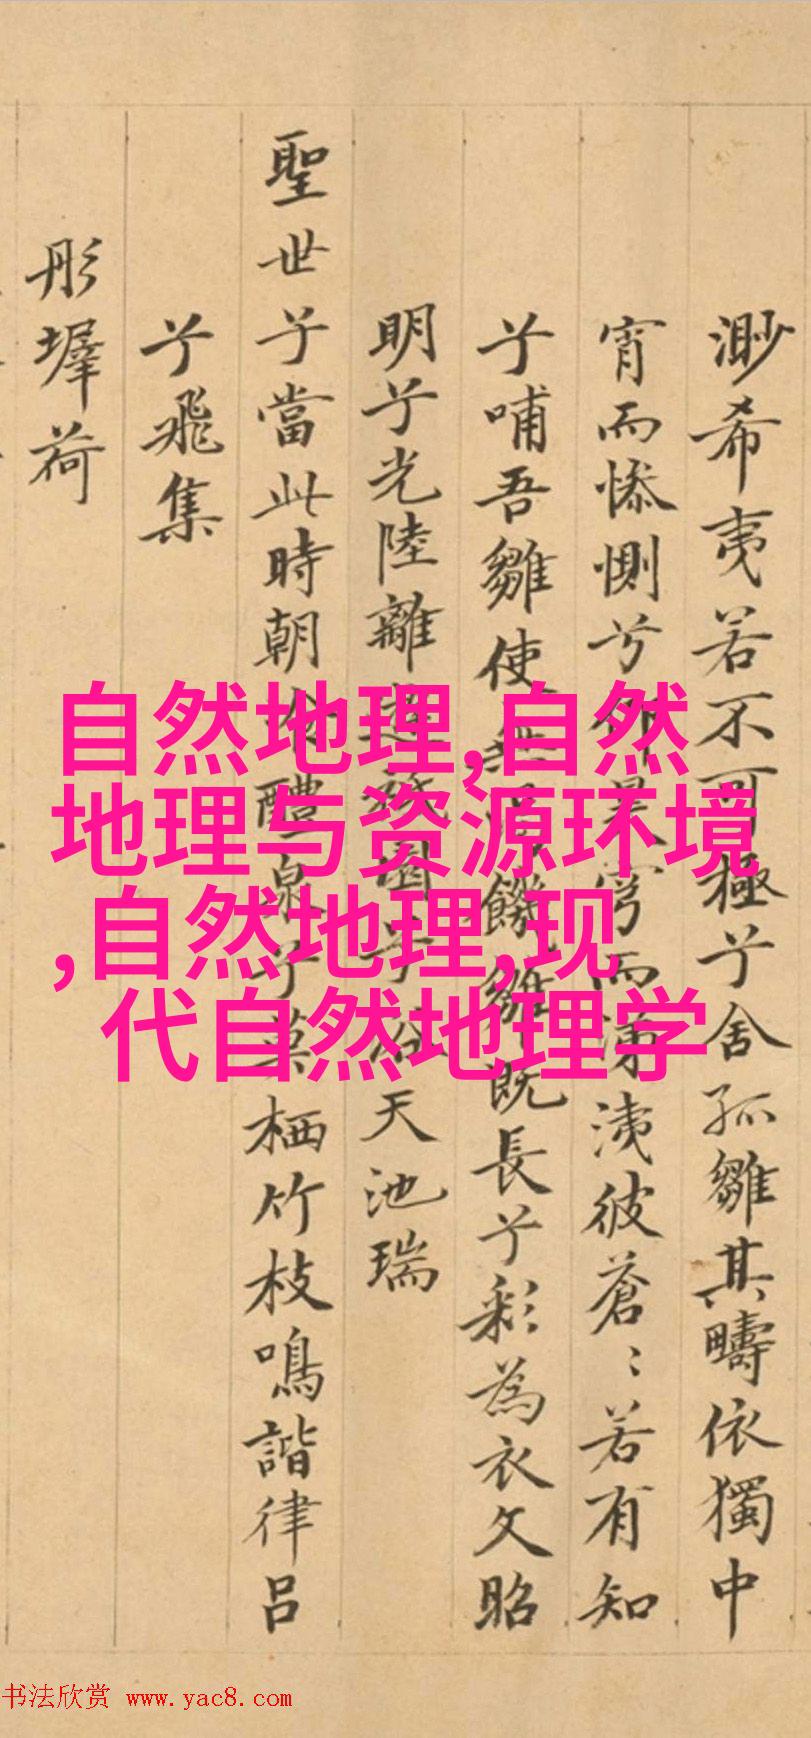 渺希夷若不可極兮舍孤雛其疇依獨中
宵而慘惻兮仰昊穹而涕洟彼蒼〻若有知
兮哺吾雛使無飢雛既長兮彩為衣文昭
明兮光陸離天池瑞
聖世兮當此時朝醴泉兮莫栖竹枝鳴諧律呂
兮飛集
彤墀荷
自然地理,自然
地理与资源环境
,自然地理,现
代自然地理学
书法欣赏 www.yac8.com